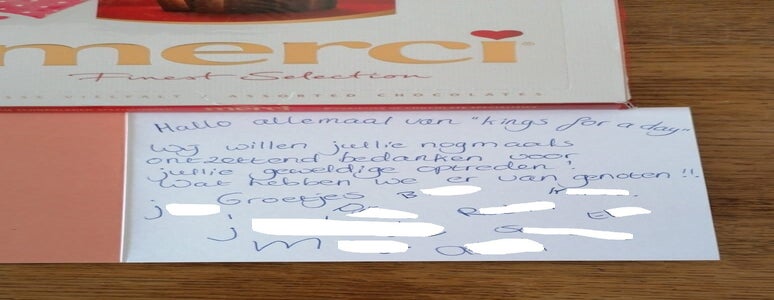 merci
Finest Selection
VIELFALT / ASSORTED CHOCOLATES
Hallo allemaal van "kings for a day"
Wij willen jullie nogmaals
ontzettend bedanken voor
jullie geweldige optreden!
Wat hebben we er van genoten!!
Groetjes B
J D R E
J G
M a